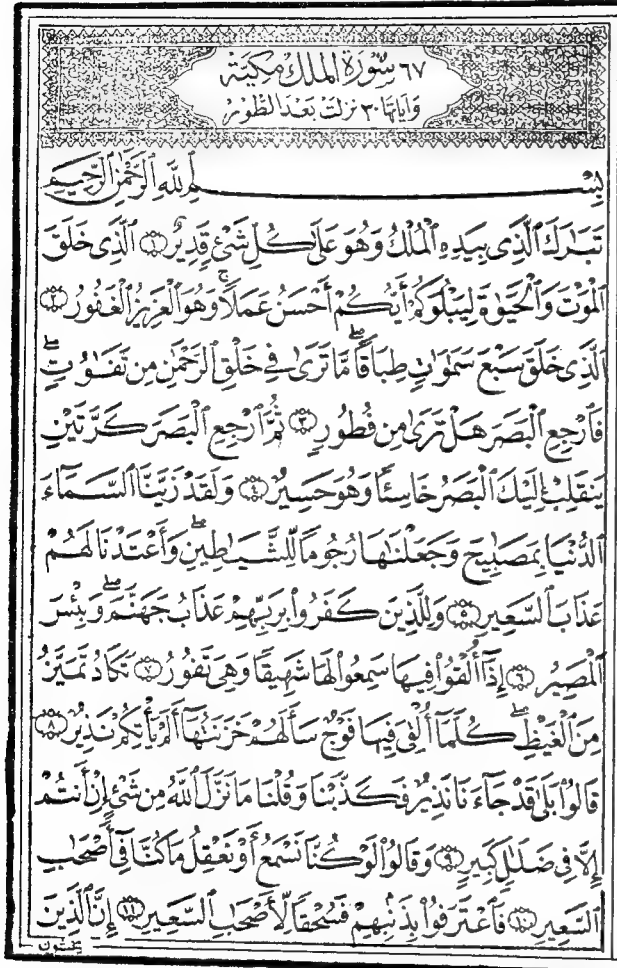 ٦٧ سُورَةُ المُلكِ مَكِيَّة
وَآيَاتُهَا ٣٠ نَزَلَتْ بَعْدَ الطُّورِ
بِسْمِ ٱللَّهِ ٱلرَّحْمَٰنِ ٱلرَّحِيمِ
تَبَٰرَكَ ٱلَّذِى بِيَدِهِ ٱلْمُلْكُ وَهُوَ عَلَىٰ كُلِّ شَىْءٍ قَدِيرٌ ١ ٱلَّذِى خَلَقَ
ٱلْمَوْتَ وَٱلْحَيَوٰةَ لِيَبْلُوَكُمْ أَيُّكُمْ أَحْسَنُ عَمَلًا ۚ وَهُوَ ٱلْعَزِيزُ ٱلْغَفُورُ ٢
ٱلَّذِى خَلَقَ سَبْعَ سَمَٰوَٰتٍ طِبَاقًا ۖ مَّا تَرَىٰ فِى خَلْقِ ٱلرَّحْمَٰنِ مِن تَفَٰوُتٍ ۖ
فَٱرْجِعِ ٱلْبَصَرَ هَلْ تَرَىٰ مِن فُطُورٍ ٣ ثُمَّ ٱرْجِعِ ٱلْبَصَرَ كَرَّتَيْنِ
يَنقَلِبْ إِلَيْكَ ٱلْبَصَرُ خَاسِئًا وَهُوَ حَسِيرٌ ٤ وَلَقَدْ زَيَّنَّا ٱلسَّمَآءَ
ٱلدُّنْيَا بِمَصَٰبِيحَ وَجَعَلْنَٰهَا رُجُومًا لِّلشَّيَٰطِينِ ۖ وَأَعْتَدْنَا لَهُمْ
عَذَابَ ٱلسَّعِيرِ ٥ وَلِلَّذِينَ كَفَرُوا۟ بِرَبِّهِمْ عَذَابُ جَهَنَّمَ ۖ وَبِئْسَ
ٱلْمَصِيرُ ٦ إِذَآ أُلْقُوا۟ فِيهَا سَمِعُوا۟ لَهَا شَهِيقًا وَهِىَ تَفُورُ ٧ تَكَادُ تَمَيَّزُ
مِنَ ٱلْغَيْظِ ۖ كُلَّمَآ أُلْقِىَ فِيهَا فَوْجٌ سَأَلَهُمْ خَزَنَتُهَآ أَلَمْ يَأْتِكُمْ نَذِيرٌ ٨
قَالُوا۟ بَلَىٰ قَدْ جَآءَنَا نَذِيرٌ فَكَذَّبْنَا وَقُلْنَا مَا نَزَّلَ ٱللَّهُ مِن شَىْءٍ إِنْ أَنتُمْ
إِلَّا فِى ضَلَٰلٍ كَبِيرٍ ٩ وَقَالُوا۟ لَوْ كُنَّا نَسْمَعُ أَوْ نَعْقِلُ مَا كُنَّا فِىٓ أَصْحَٰبِ
ٱلسَّعِيرِ ١٠ فَٱعْتَرَفُوا۟ بِذَنۢبِهِمْ فَسُحْقًا لِّأَصْحَٰبِ ٱلسَّعِيرِ ١١ إِنَّ ٱلَّذِينَ
يخشون